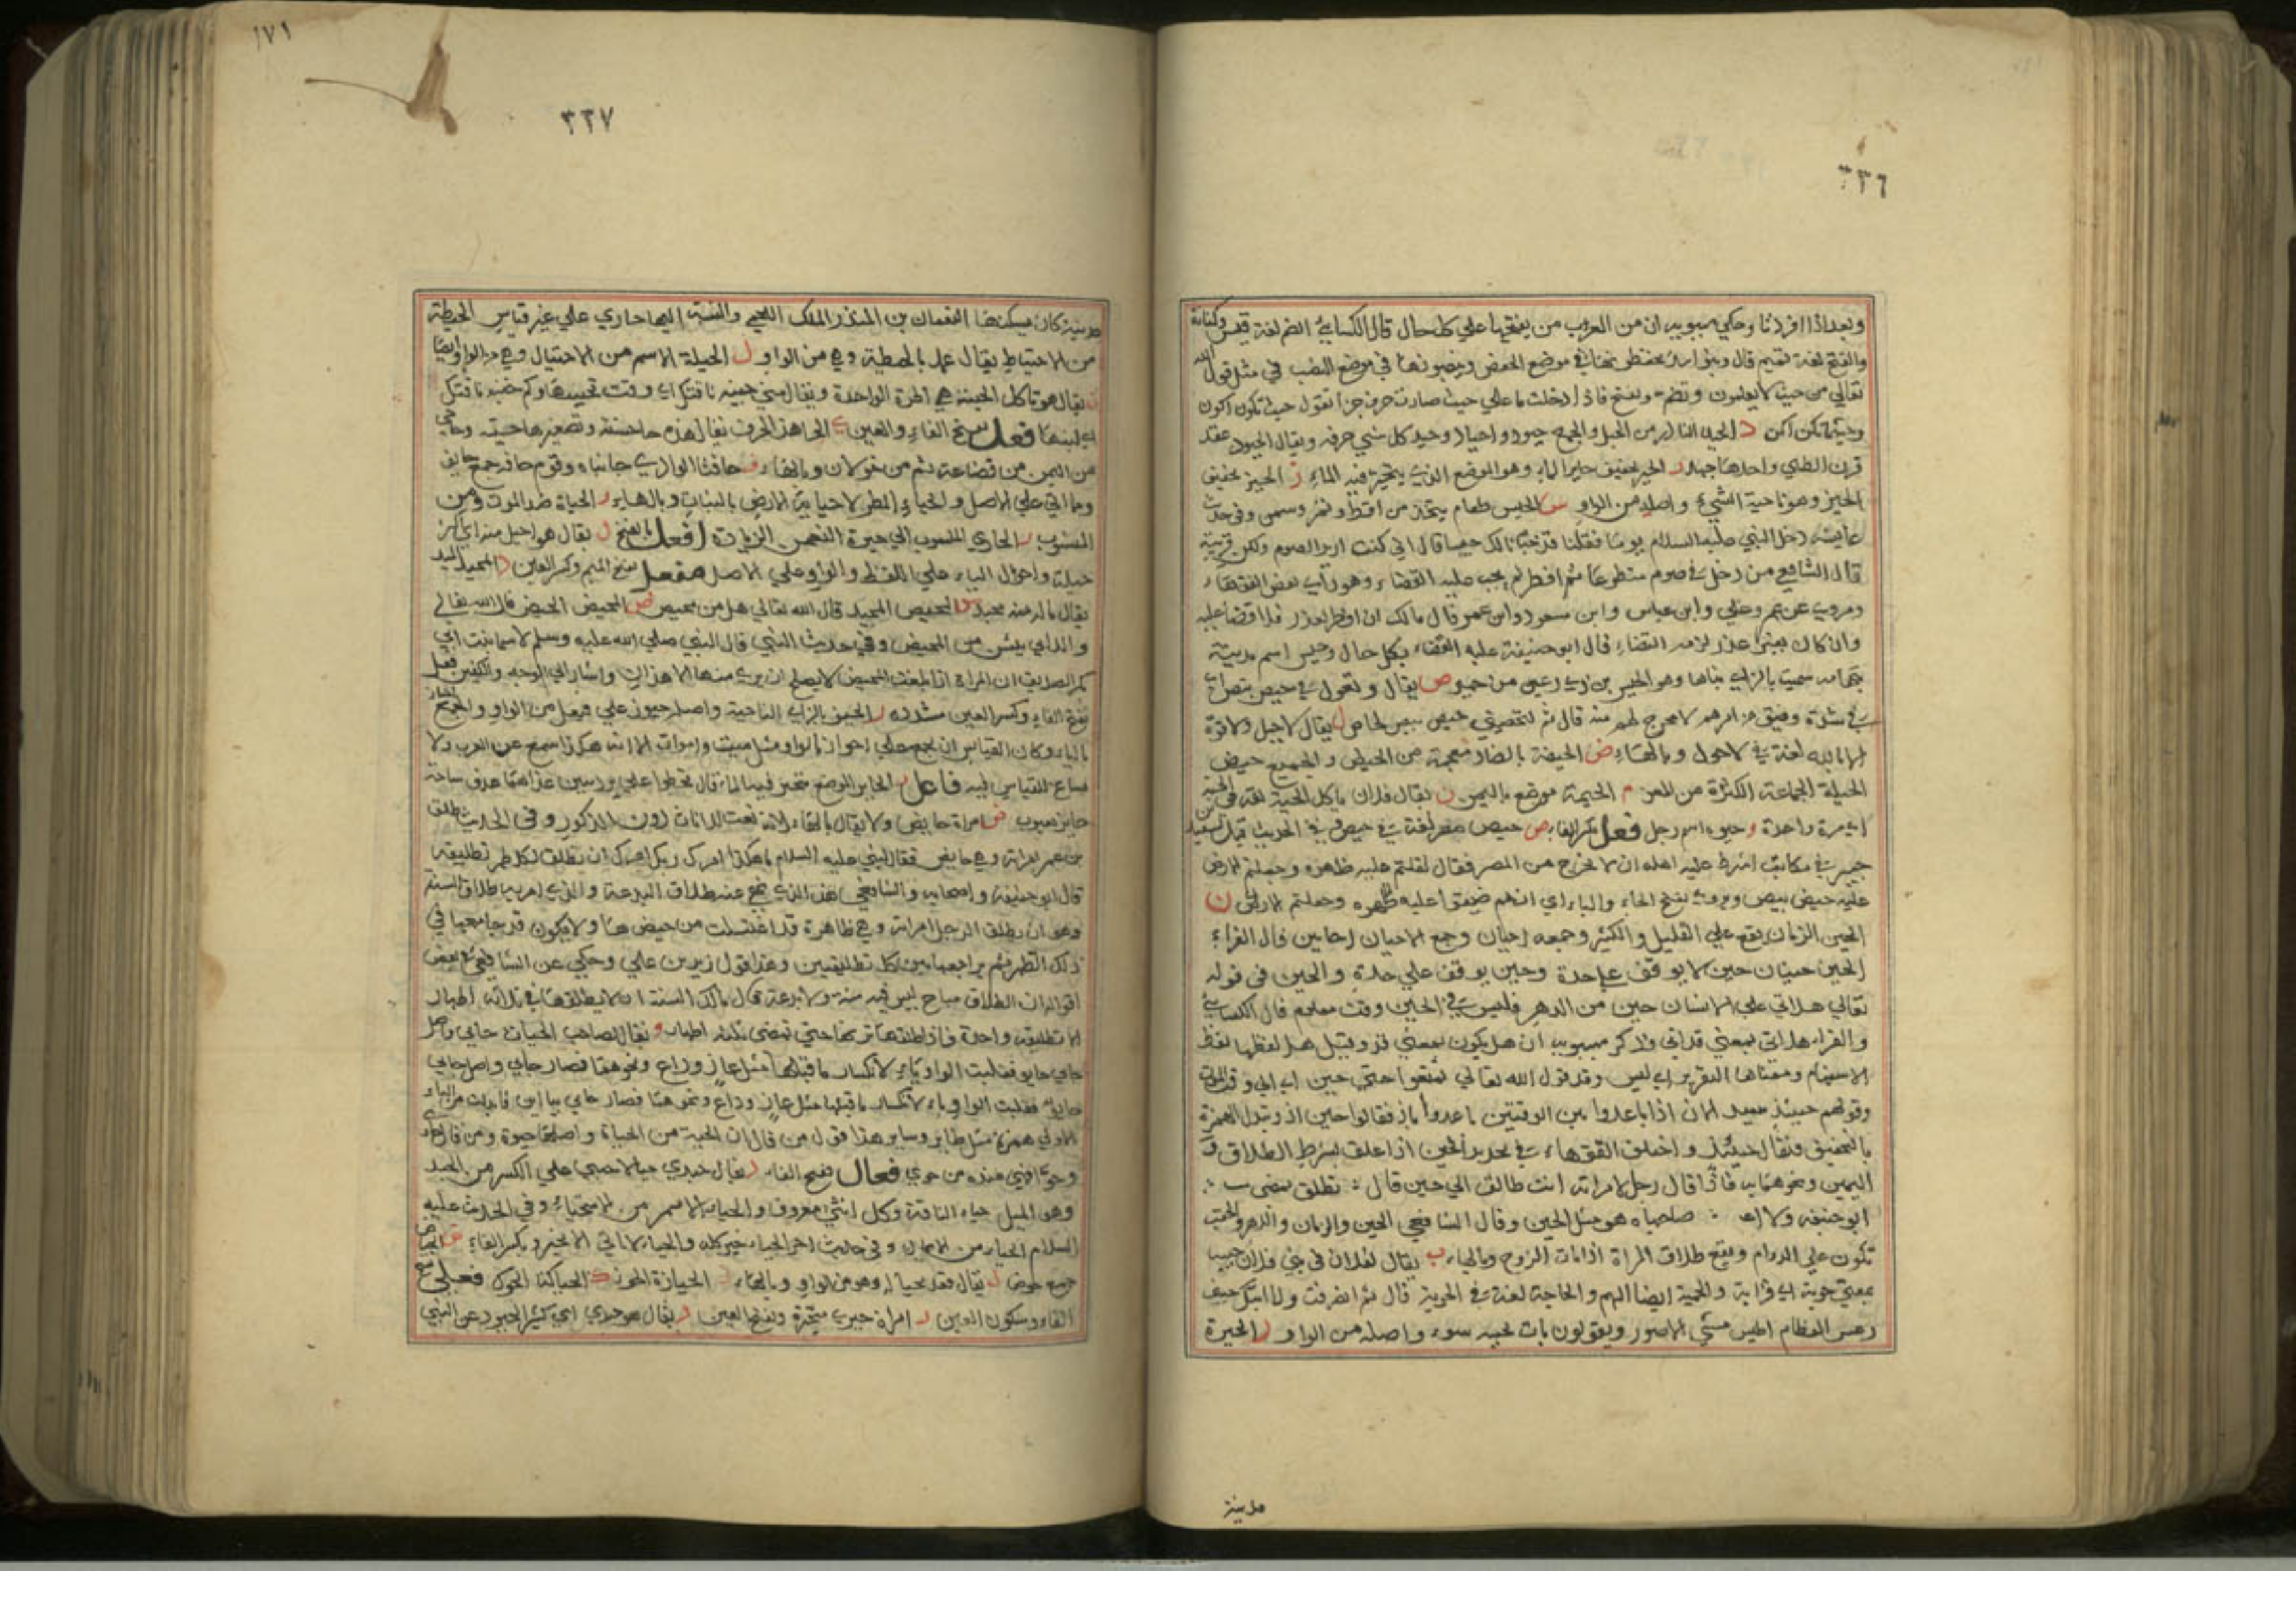 ٣٣٦
وبعد اذا افردتا وحكي سيبويه ان من العرب من يفتحها علي كل حال قال الكسائي الضم لغة قيس وكنانة
والفتح لغة تميم قال وبنو اسد يخفضونها في موضع الخفض وينصبونها في موضع النصب في مثل قول الله
تعالي من حيث لا يعلمون وتضم وتفتح فاذا ادخلت ما علي حيث صارت حرف جزا تقول حيث تكون اكون
وحيثما تكن اكن د الحيد النادر من الجبل والجمع حيود واحياد وحيد كل شي حرفه ويقال الحيود عقد
قرن الظبي واحدها حيد ر الحير تخفيف حاير الماء وهو الموضع الذي يتحير فيه الماء ز الحيز تخفيف
الحيز وهو ناحية الشيء واصله من الواو س الحيس طعام يتخذ من اقط وتمر وسمن وفي حديث
عايشه دخل النبي عليه السلام يوما فقلنا قد خبانا لك حيسا قال اني كنت اريد الصوم ولكن قربيه
قال الشافعي من دخل في صوم متطوعا ثم افطر لم يجب عليه القضاء وهو راي بعض الفقهاء
ومروي عن عمر وعلي وابن عباس وابن مسعود وابن عمر وقال مالك ان افطر لعذر فلا قضا عليه
وان كان بغير عذر لزمه القضاء قال ابو حنيفة عليه القضاء بكل حال وحيس اسم مدينة
بتهامه سميت بالذي بناها وهو الحيس بن ذي رعين من حمير ص يقال وقعوا في حيص بيص اي
في شدة وضيق من امرهم لا مخرج لهم منه قال ثم لتحصني حيص بيص لحاص ل يقال لا حيل ولا قوة
الا بالله لغة في لا حول وبالهاء ض الحيضة بالضاد معجمة من الحيض والجميع حيض
الحيلة الجماعة الكثيرة من المعز م الحيمة موضع باليمن ن يقال فلان ياكل الحينة لغة في الحينه
اي مرة واحدة و حيوه اسم رجل فعل بكسر الفاء ص حيص بيص لغة في حيص وفي الحديث قيل لسعيد بن
جبير في مكاتب اشترط عليه اهله ان لا يخرج من المصر فقال اثقلتم عليه ظهره وجعلتم الارض
عليه حيص بيص ويروي بفتح الحاء والباء اي انهم ضيقوا عليه ظهره وجعلتم الارض ن
الحين الزمان يقع علي القليل والكثير وجمعه احيان وجمع الاحيان احايين قال الفراء
الحين حينان حين لا يوقف علي حدة وحين يوقف علي حدة والحين في قوله
تعالي هل اتي علي الانسان حين من الدهر فليس في الحين وقت معلوم قال الكسائي
والفراء هل اتي بمعني قد اتي وذكر سيبويه ان هل يكون بمعني قد وقيل هل لفظها لفظ
الاستفهام ومعناها التقرير اي ليس وقد قول الله تعالي تمتعوا حتي حين اي الي وقت الموت
وقولهم حينئذ تبعيد الان اذا باعدوا بين الوقتين باعدوا باذ فقالوا حين اذ وتبدل الهمزة
بالتخفيف فيقال حينئذ واختلف الفقهاء في تحديد الحين اذا علق بشرط الطلاق و
اليمين ونحوهما فاذا قال رجل لامراته انت طالق الي حين قال
ابو حنيفه صاحباه هو مثل الحين وقال الشافعي الحين والزمان والدهر والحقب
تكون علي الدوام ويقع طلاق المراة اذا مات الزوج وبالهاء ب يقال لفلان في بني فلان حيبة
بمعني حوبة اي قرابة والحيبة ايضا الهم والحاجة لغة في الحوبة قال ثم انصرفت ولا ابثك حيبتي
رعش العظام اطيش مشي الاصور ويقولون بات بحيبه سوء واصله من الواو ر الحيرة
مدينة
١٧١
٣٣٧
مدينة كان يسكنها النعمان بن المنذر الملك اللخمي والنسبة اليها حاري علي غير قياس الحيطة
من الاحتياط يقال عمل بالحيطة وهي من الواو ل الحيلة الاسم من الاحتيال وهي من الواو ايضا
ن يقال هو ياكل الحينة هي المرة الواحدة ويقال متي حينه ناقتك اي وقت تحيينها وكم حينه ناقتك
اي لبنها فعل بفتح الفاء والعين الحا هذا الحرف يقال هذه حا حسنة وتصغيرها حييه وحي
من اليمن من قضاعة ثم من خولان وبالفاء ف حافتا الوادي جانباه وقوم حافه جمع حايف
وما اتي علي الاصل و الحيا المطر لاحيايه الارض بالنبات وبالهاء و الحياة ضد الموت ومن
المنسوب ر الحاري المنسوب الي حيرة النعمن الزيادة افعل بالفتح ل يقال هو احيل منه اي اكثر
حيلة واحول الياء علي اللفظ والواو علي الاصل مفعل بفتح الميم وكسر العين د المحيد الميد
يقال ما له منه محيد ص المحيص المحيد قال الله تعالي هل من محيص ض المحيض الحيض قال الله تعالي
واللائي يئسن من المحيض وفي حديث النبي قال النبي صلي الله عليه وسلم لاسما بنت ابي
بكر الصديق ان المراة اذا بلغت المحيض لا يصلح ان يري منها الا هذان واشار الي الوجه والكفين فعل
بفتح الفاء وكسر العين مشدده ز الحيز بالزاي الناحية واصله حيوز علي فيعل من الواو والجمع احياز
بالياء وكان القياس ان يجمع علي احواز بالواو مثل ميت واموات الا انه هكذا سمع عن العرب ولا
مساغ للقياس فيه فاعل ر الحاير الموضع يتحير فيه الماء قال تخطوا علي برديتين غذاهما غدق بساحة
حاير يعبوب ض امراة حايض ولا يقال بالهاء لانه نعت للاناث دون الذكور وفي الحديث طلق
بن عمر امراته وهي حايض فقال النبي عليه السلام ما هكذا امرك ربك امرك ان تطلق لكل طهر تطليقه
قال ابو حنيفة واصحابه والشافعي هذا الذي نهي عنه طلاق البدعة والذي امر به طلاق السنة
وهو ان يطلق الرجل امراته وهي طاهرة قد اغتسلت من حيضها ولا يكون قد جامعها في
ذلك الطهر ثم يراجعها بين كل تطليقتين وهذا قول زيد بن علي وحكي عن الشافعي في بعض
اقواله ان الطلاق مباح ليس فيه سنة ولا بدعة وقال مالك السنة ان لا يطلقها في ثلاثة اطهار
الا تطليقه واحدة فاذا طلقها تركها حتي تمضي ثلاثه اطهار و يقال لصاحب الحيات حايي واصل
حايي حايو فقلبت الواو ياء لانكسار ما قبلها مثل غاز وداع ونحوهما فصار حايي واصل حايي
حايو فقلبت الواو ياء لانكسار ما قبلها مثل غاز وداع ونحوهما فصار حايي بياءين فابدلت من الياء
الاولي همزة مثل طاير وساير هذا قول من قال ان الحية من الحياة واصلها حيوة ومن قال حاوٍ
وحواء فهي عنده من حوي فعال بفتح الفاء د يقال حيدي حياد الاصح علي الكسر من الحيد
وهو الميل حياء الناقة وكل انثي معروف والحياء الاسم من الاستحياء وفي الحديث عليه
السلام الحياء من الايمان وفي حديث اخر الحياء خير كله والحياء لا ياتي الا بخير وبكسر الفاء ض الحياض
جمع حوض ل يقال قعد حياله وهو من الواو وبالهاء الحيازة الحوز ك الحياكة الحوك فعلي بفتح
الفاء وسكون العين ر امراة حيري متحيرة وبفتح العين د يقال هو حيدي اي كثير الحيود عن الشي